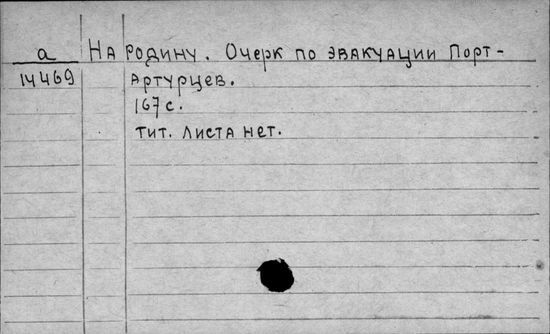 а На родину. Очерк по эвакуации Порт-
14469 Артурцев.
167 с.
тит. листа нет.